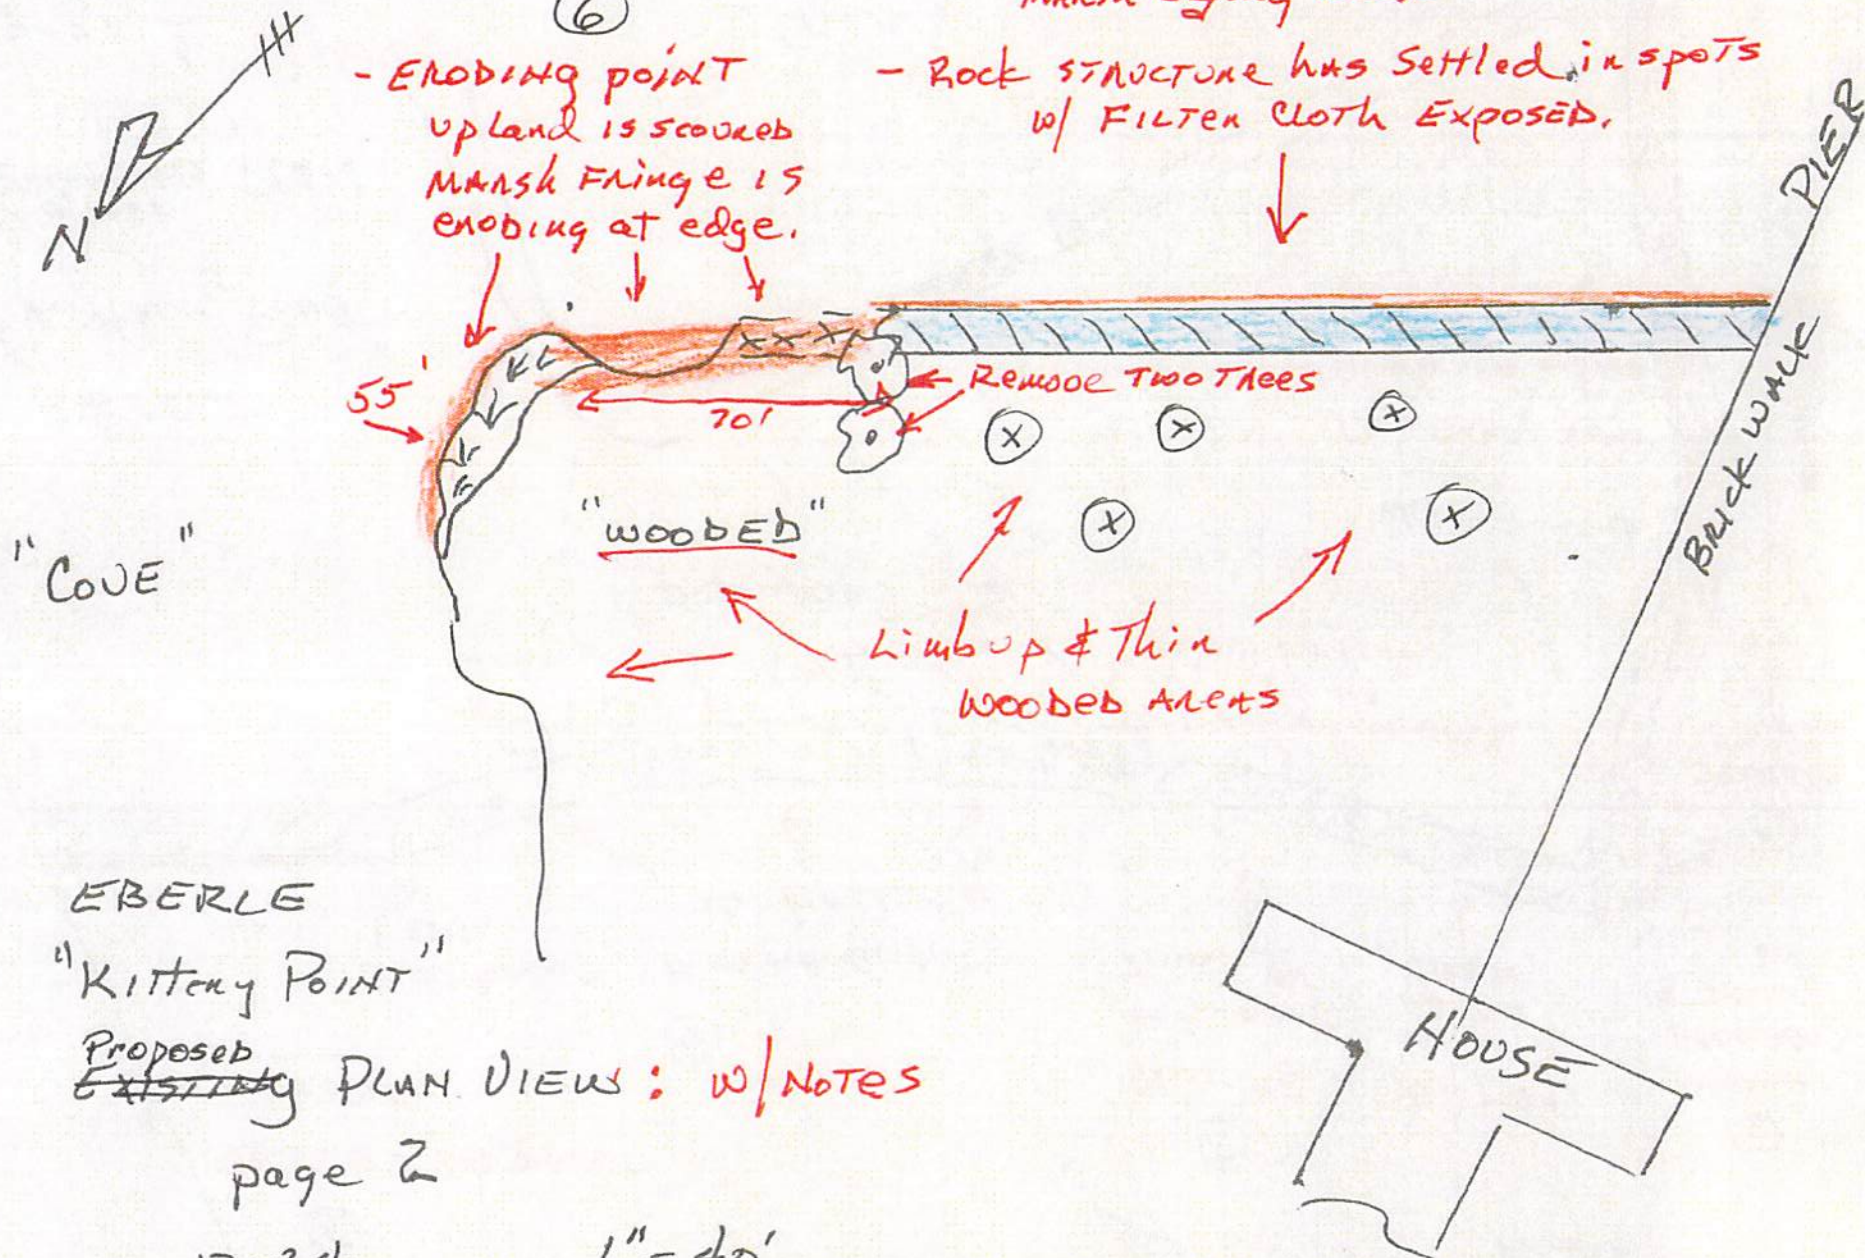 6
- ERODING POINT
upland is scoured
Marsh Fringe is
eroding at edge.
- Rock structure has Settled in spots
w/ Filter Cloth Exposed.
PIER
N
55'
70'
Remove Two Trees
BRICK WALK
"WOODED"
"COVE"
Limb up & Thin
Wooded Areas
EBERLE
"Kittery Point"
Proposed
Existing PLAN VIEW: W/NOTES
page 2
HOUSE
1"=40'